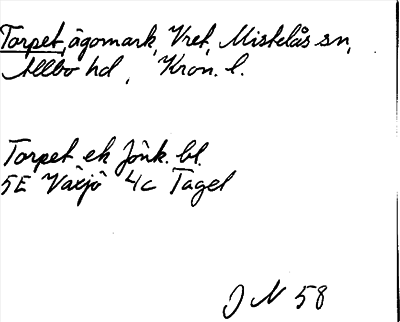 Torpet, ägomark, Vret, Mistelås sn,
Allbo hd, Kron. l.
Torpet ek Jönk. bl.
5E Växjö 4c Tagel
J N 58